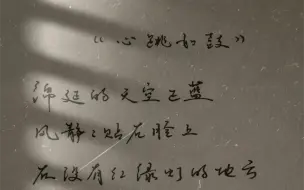 《心跳和鼓》
绵延的天空已蓝
风静静贴在脸上
在没有红绿灯的地方